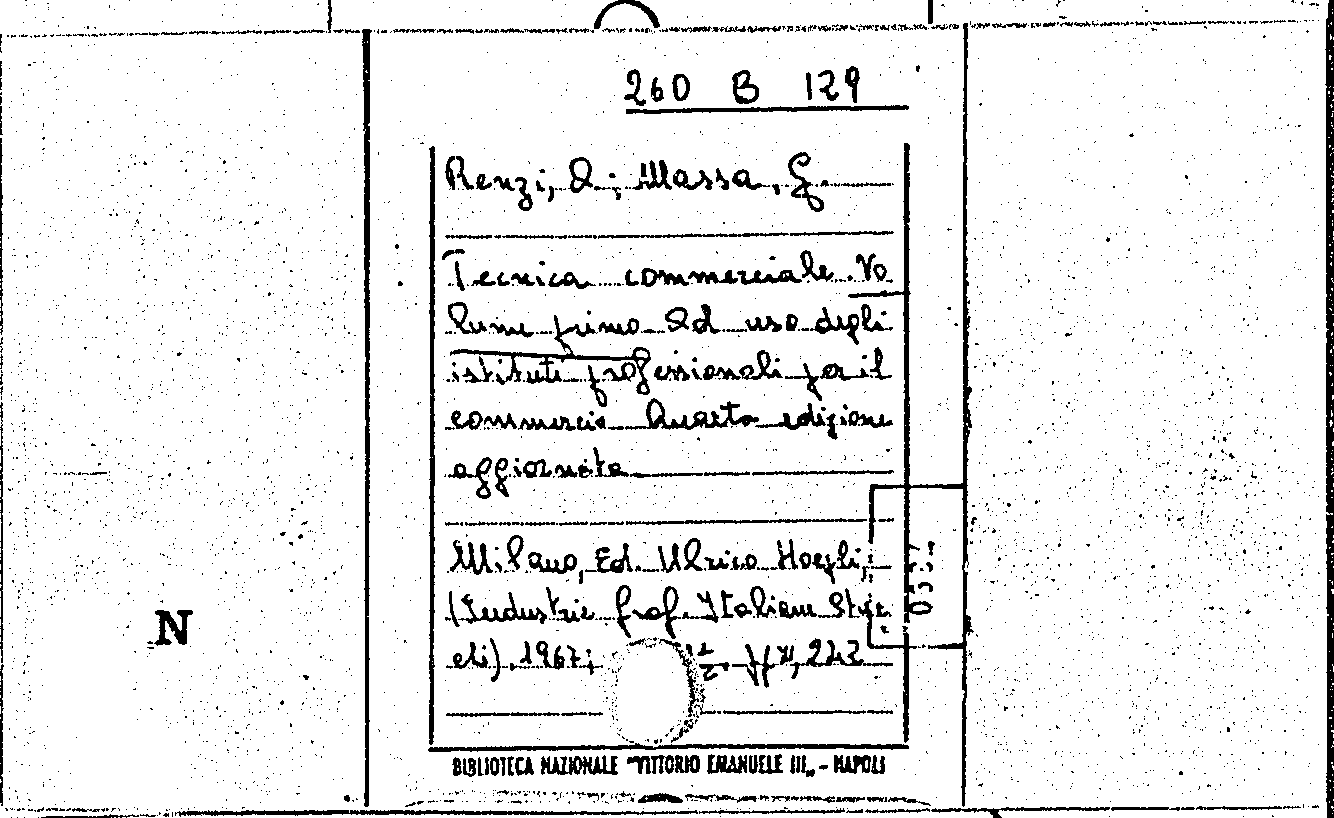 260 B 129
Renzi, A.; Massa, G.
Tecnica commerciale. Vo
lume primo Ad uso degli
istituti professionali per il
commercio Quarta edizione
aggiornata
Milano, Ed. Ulrico Hoepli,
(Industrie Graf. Italiane Stuc
chi), 1967; 222
N
BIBLIOTECA NAZIONALE "VITTORIO EMANUELE III„ - NAPOLI